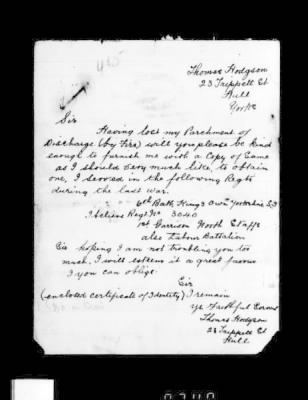 Thomas Hodgson
23 Trippett St
Hull
Yorks
Sir
Having lost my Parchment of
Discharge (by Fire) will you please be kind
enough to furnish me with a Copy of Same
as I should very much like to obtain
one, I served in the following Regts
during the last war.
6th Batt, Kings Own Yorkshire L I
Regt No 3040
1st Garrison North Staffs
also Labour Battalion
Sir hoping I am not troubling you too
much, I will esteem it a great favour
if you can oblige
Sir
(enclosed certificate of Identity) I remain
yr Faithful Servant
Thomas Hodgson
23 Trippett St
Hull